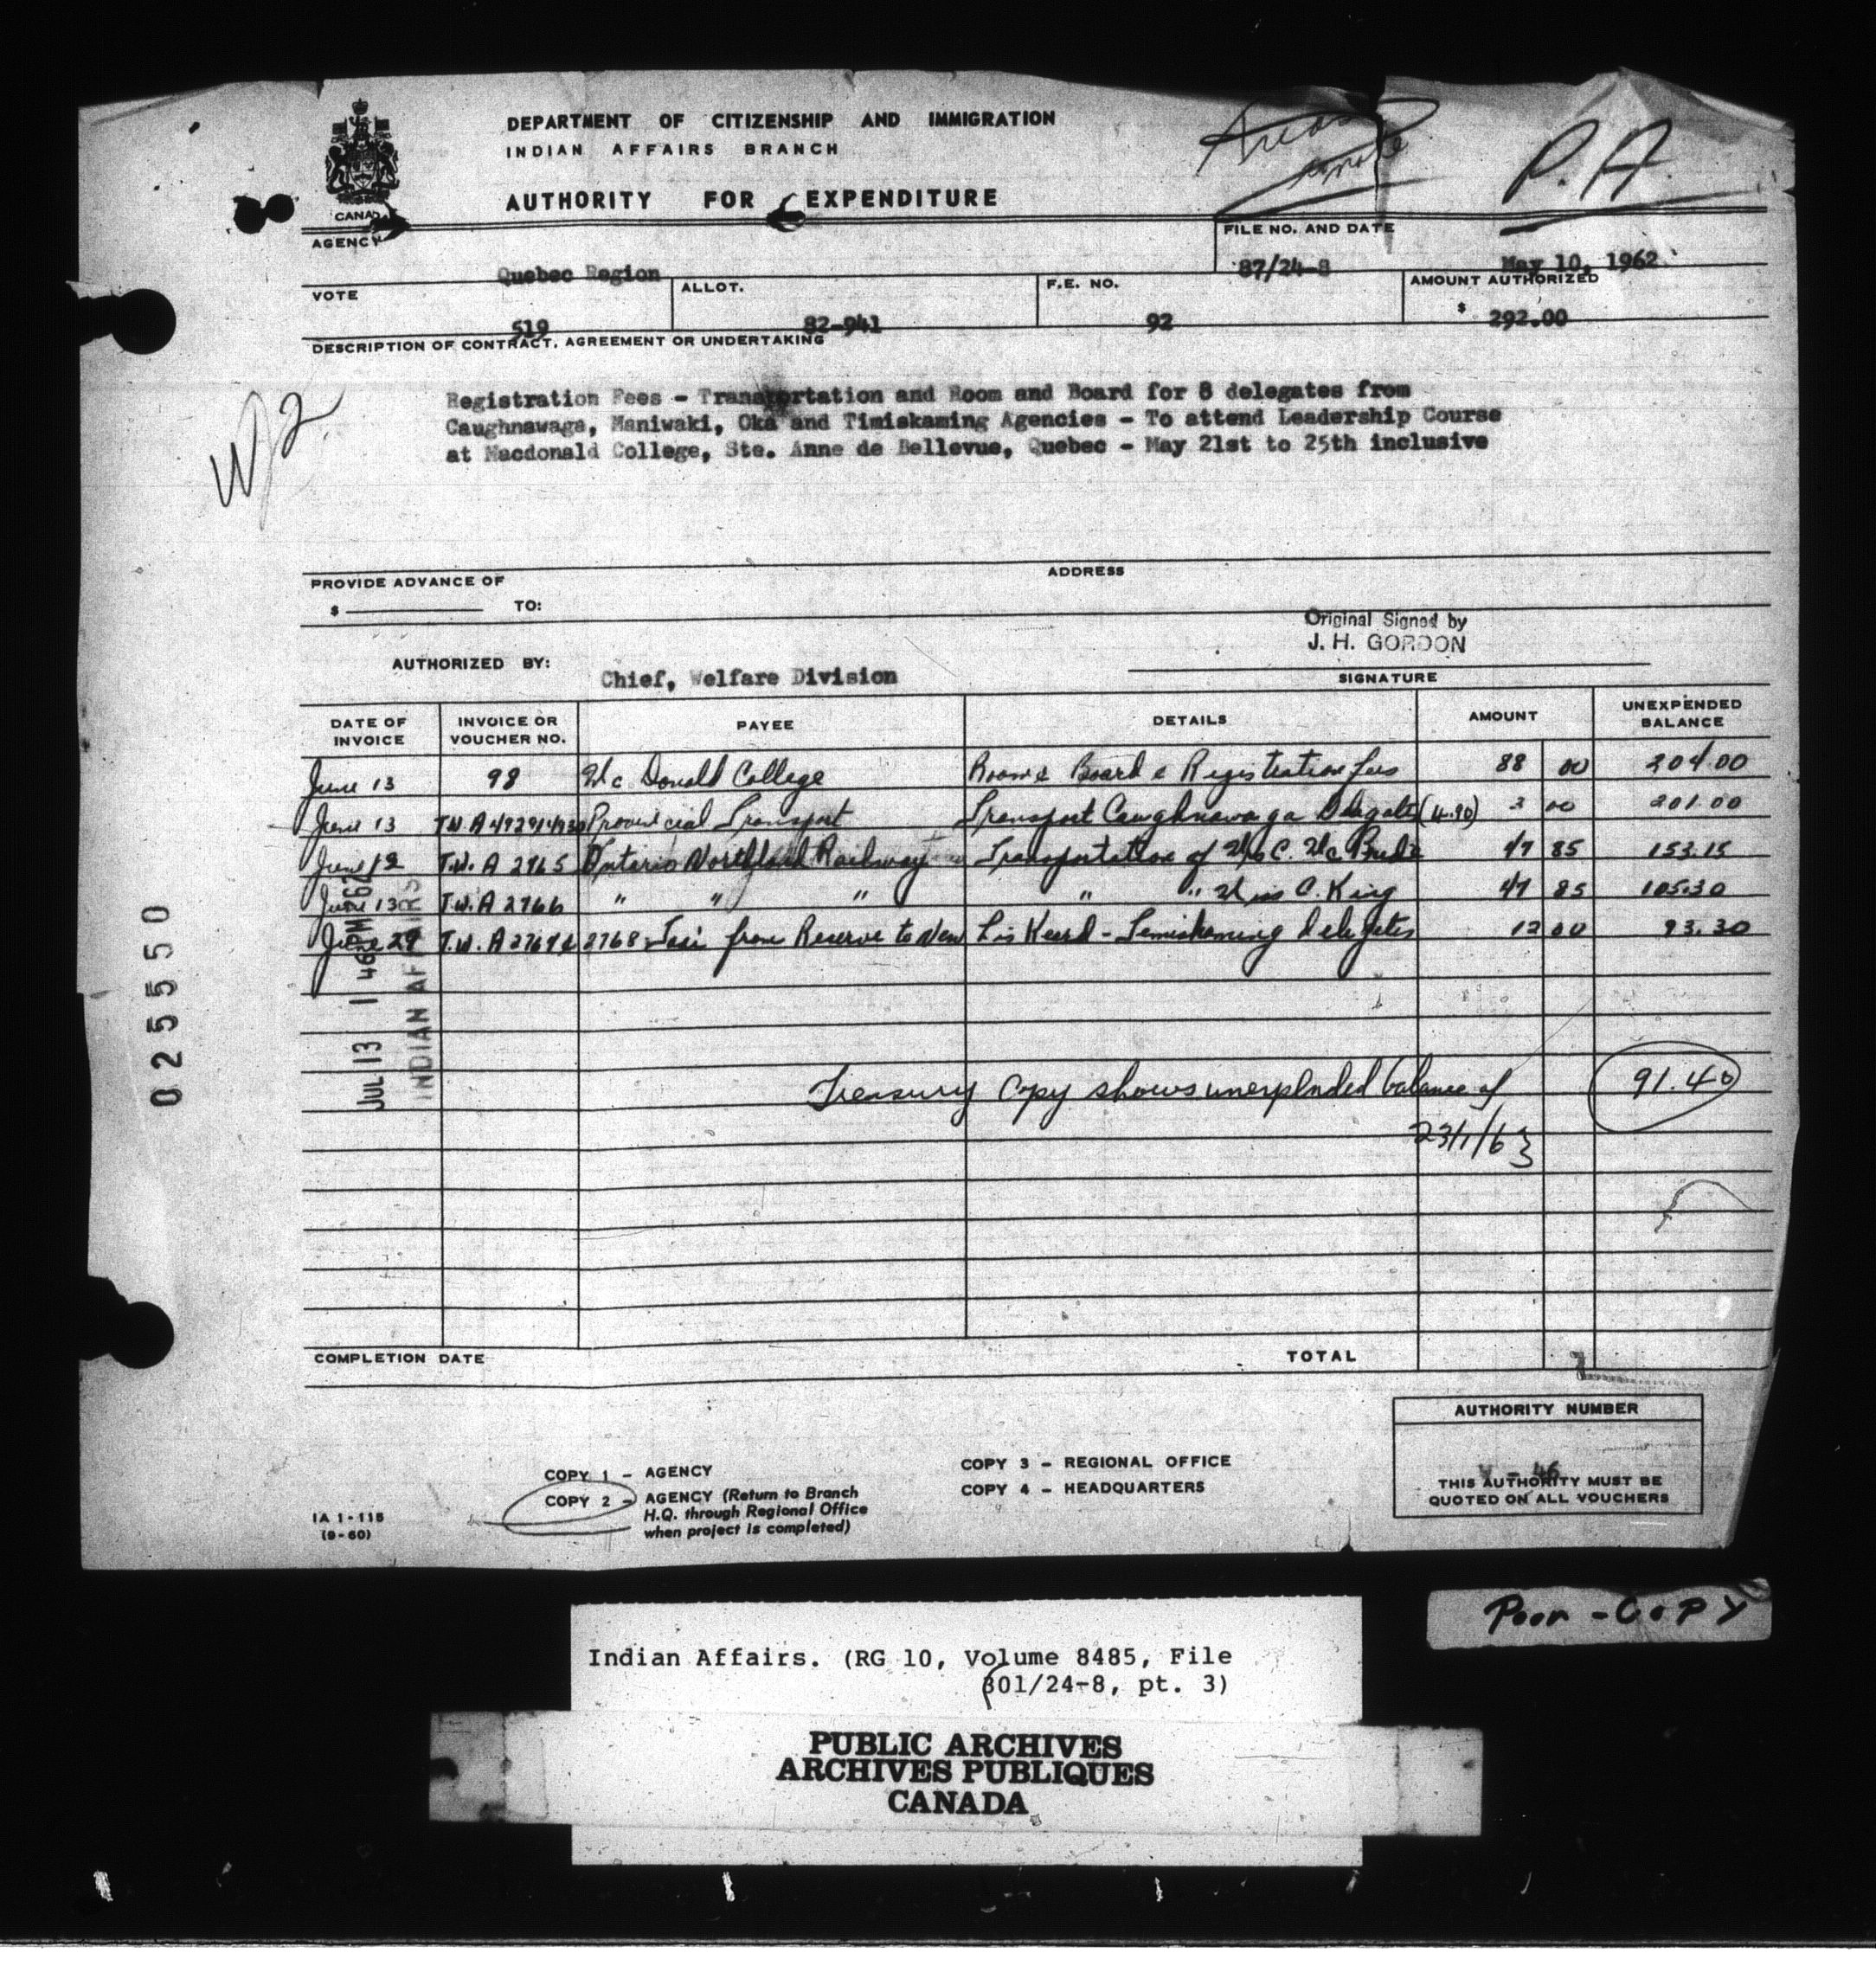 DEPARTMENT OF CITIZENSHIP AND IMMIGRATION
INDIAN AFFAIRS BRANCH
AUTHORITY FOR EXPENDITURE
P.A.
CANADA
AGENCY
Quebec Region
FILE NO. AND DATE
87/24-8 May 10, 1962
VOTE
519
ALLOT.
82-941
F.E. NO.
92
AMOUNT AUTHORIZED
$ 292.00
DESCRIPTION OF CONTRACT, AGREEMENT OR UNDERTAKING
Registration Fees - Transportation and Room and Board for 8 delegates from
Caughnawaga, Maniwaki, Oka and Timiskaming Agencies - To attend Leadership Course
at Macdonald College, Ste. Anne de Bellevue, Quebec - May 21st to 25th inclusive
PROVIDE ADVANCE OF
ADDRESS
$ TO:
Original Signed by
J. H. GORDON
AUTHORIZED BY: Chief, Welfare Division
SIGNATURE
DATE OF INVOICE
INVOICE OR VOUCHER NO.
PAYEE
DETAILS
AMOUNT
UNEXPENDED BALANCE
June 13 98 Mc Donald College Room & Board & Registration fees 88 00 204.00
June 13 Provincial Transport Transport Caughnawaga Delegates (4.90) 3 00 201.00
June 12 T.W.A 2765 Ontario Northland Railway Transportation of C. Mc 47 85 153.15
June 13 T.W.A 2766 " " " " " Miss C. King 47 85 105.30
June 29 T.W.A 2768 Taxi from Reserve to New Lis Keard - Temiskaming delegates 12 00 93.30
JUL 13 1 46 PM '62
INDIAN AFFAIRS
025550
Treasury Copy shows unexplnded balance of 91.40
23/1/63
COMPLETION DATE
TOTAL
AUTHORITY NUMBER
- 46
THIS AUTHORITY MUST BE
QUOTED ON ALL VOUCHERS
COPY 1 - AGENCY
COPY 2 - AGENCY (Return to Branch
H.Q. through Regional Office
when project is completed)
COPY 3 - REGIONAL OFFICE
COPY 4 - HEADQUARTERS
IA 1-118
(9-60)
Poor - COPY
Indian Affairs. (RG 10, Volume 8485, File
301/24-8, pt. 3)
PUBLIC ARCHIVES
ARCHIVES PUBLIQUES
CANADA